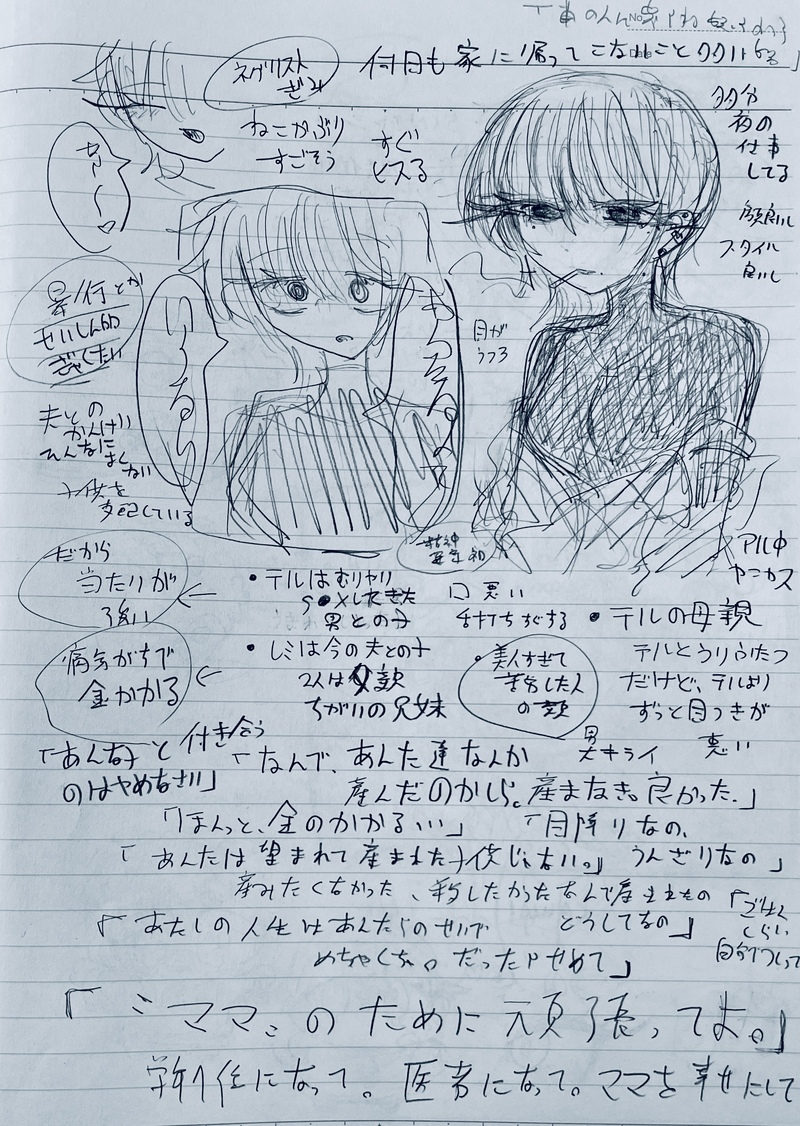 ネグリスト
ぎみ
何日も家に帰ってこないこと多々ある
ねこかぶり
すごそう
すぐ
ヒスる
多分
夜の
仕事
してる
顔良い
スタイル
良い
目が
うつろ
暴行とか
せいしん的
ぎゃくたい
うるさい
夫との
かんけい
そんなに
よくない
子供を
支配している
だから
当たりが
強い
・テルはむりやり
S●Xしてきた
男との子
口悪い
舌打ちがする
アル中
ヤニカス
・テルの母親
テルとうりふたつ
だけど、テルより
ずっと目つきが
悪い
病気がちで
金かかる
・レミは今の夫との子
2人は父親
ちがいの兄妹
・美人すぎて
苦労した人
の顔
男
大キライ
「あんな子と付き合う
のはやめなさい」
「なんで、あんた達なんか
産んだのかしら。産まなきゃ良かった。」
「ほんと、金のかかる
「あんたは望まれて産まれた子供じゃない。」
うんざりなの」
産みたくなかった、
どうしてなの」
「あたしの人生はあんたらのせいで
めちゃくちゃ。だったらせめて」
「ごはん
くらい
自分でつくって
「〝ママ〟のために頑張ってよ。」
学年1位になって。医者になって。ママを幸せにして